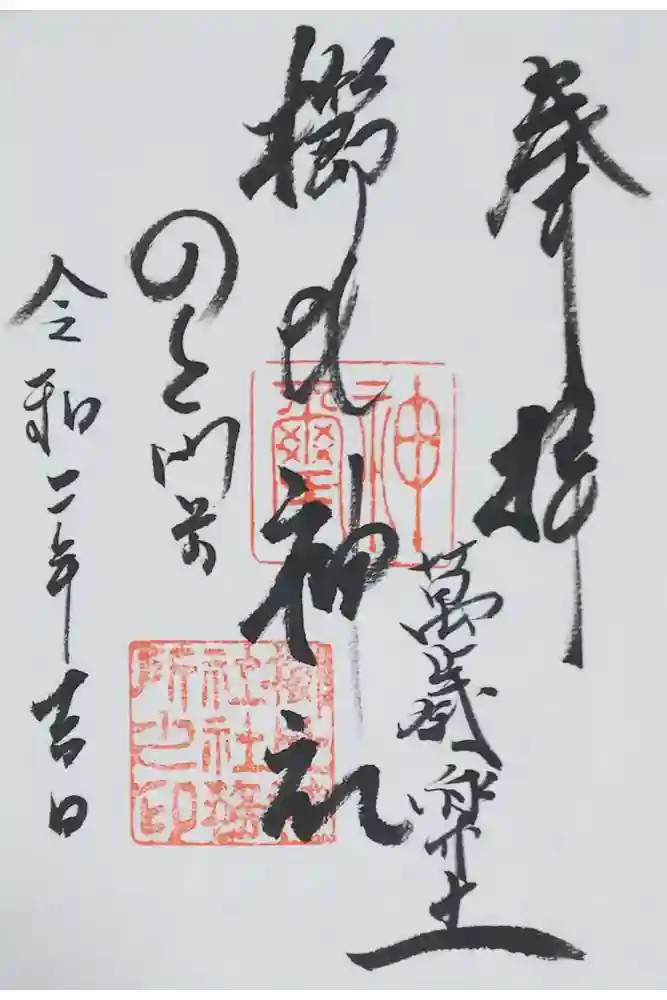 奉拝
萬歳楽土
櫛比神社
のと門前
令和二年吉日
神璽
櫛比神
社社務
所之印